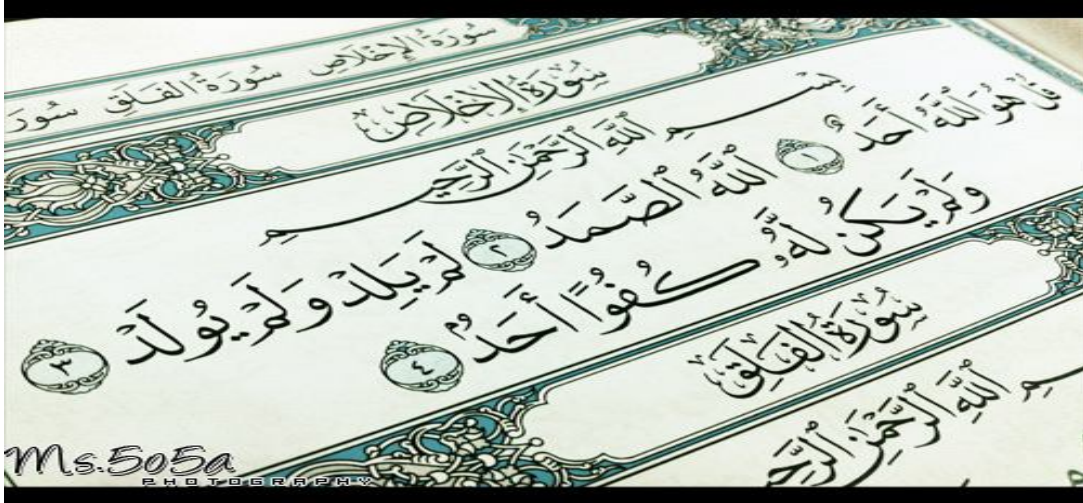 سُورَةُ الإِخْلَاصِ سُورَةُ الفَلَقِ سُورَ
سُورَةُ الإِخْلَاصِ
بِسْمِ ٱللَّهِ ٱلرَّحْمَٰنِ ٱلرَّحِيمِ
قُلْ هُوَ ٱللَّهُ أَحَدٌ ١ ٱللَّهُ ٱلصَّمَدُ ٢ لَمْ يَلِدْ وَلَمْ يُولَدْ ٣
وَلَمْ يَكُن لَّهُۥ كُفُوًا أَحَدٌۢ ٤
سُورَةُ الفَلَقِ
ٱللَّهِ ٱلرَّحْمَٰنِ
Ms.5o5a
PHOTOGRAPHY